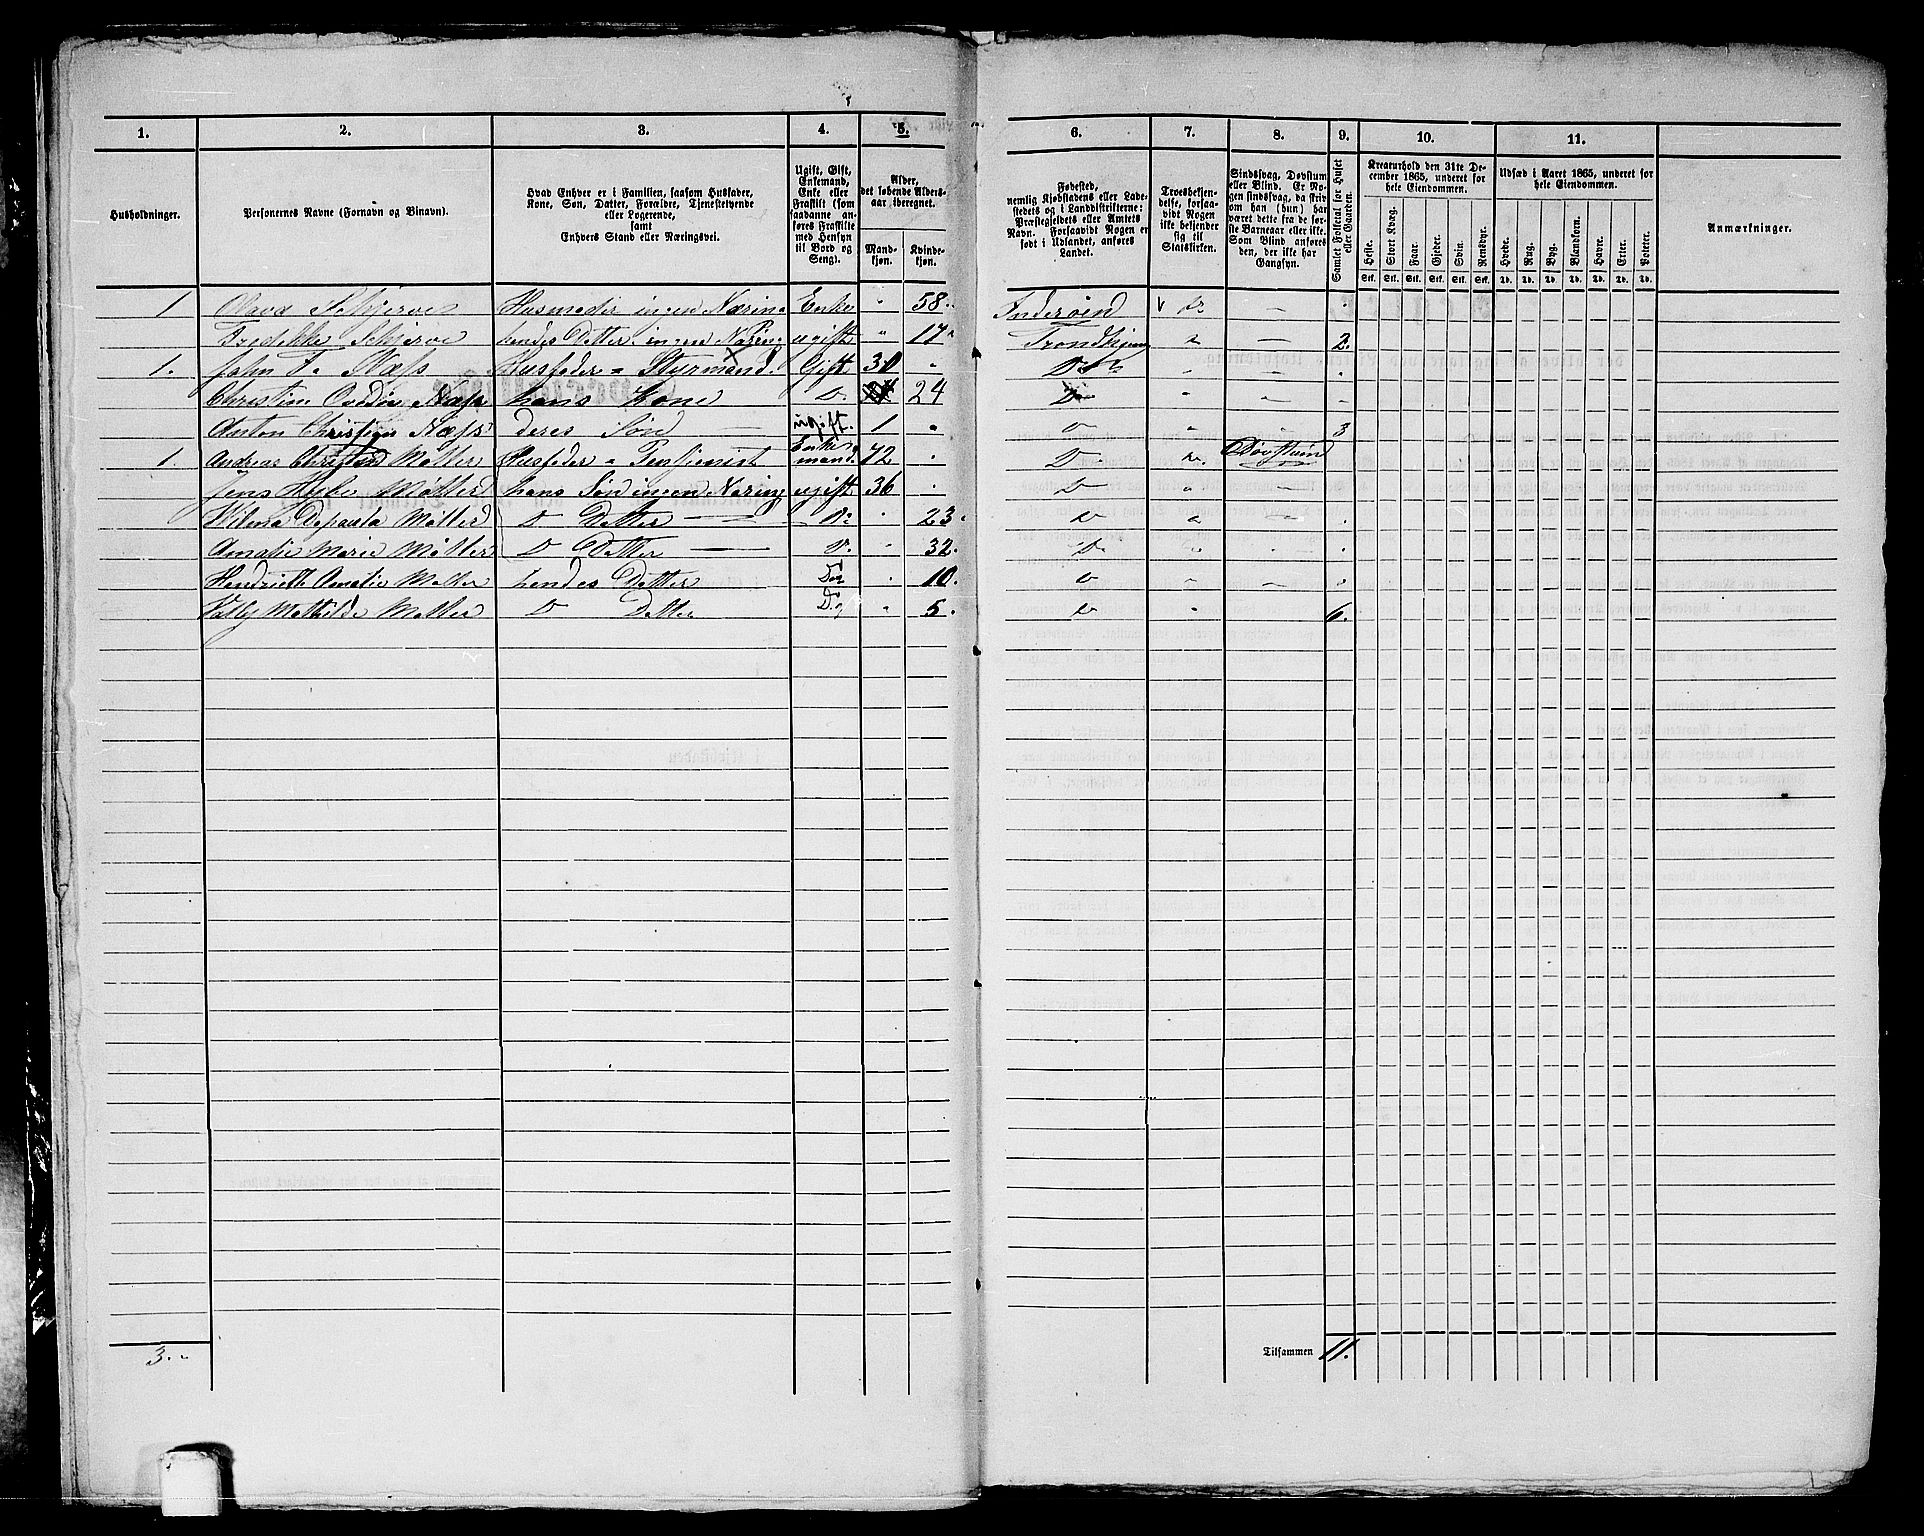 1. 2. 3. 4. 5. 6. 7. 8. 9. 10. 11.
Husholdninger.
Personernes Navne (Fornavn og Binavn).
Hvad Enhver er i Familien, saasom Husfader,
Kone, Søn, Datter, Forældre, Tjenestetyende
eller Logerende,
samt
Enhvers Stand eller Næringsvei.
Ugift, Gift,
Enkemand,
Enke eller
Fraskilt (som
saadanne an-
føres Fraskilte
med Hensyn
til Bord og
Seng).
Alder,
det løbende Alders-
aar iberegnet.
Mand-
kjøn.
Kvinde-
kjøn.
Fødested,
nemlig Kjøbstadens eller Lade-
stedets og i Landdistrikterne:
Præstegjeldets eller Amtets
Navn. Forsaavidt Nogen er
født i Udlandet, anføres
Landet.
Troesbekjen-
delse, forsaa-
vidt Nogen
ikke bekjender
sig til
Statskirken.
Sindssvag, Døvstum
eller Blind. Er No-
gen sindssvag, da skriv
om han (hun) har
været dette fra de før-
ste Barneaar eller ikke.
Som Blind anføres
den, der ikke har
Gangsyn.
Samlet Folketal for Huset
eller Gaarden.
Kreaturhold den 31te De-
cember 1865, underet for
hele Eiendommen.
Heste. Stort Kvæg. Faar. Gjeder. Svin. Rensdyr.
Stk. Stk. Stk. Stk. Stk. Stk.
Udsæd i Aaret 1865, underet for
hele Eiendommen.
Hvede. Rug. Byg. Blandkorn. Havre. Erter. Poteter.
Td. Td. Td. Td. Td. Td. Td.
Anmærkninger.
1 Schjerve Husmoder ingen Næring Enke 58 Inderøen
Fredrikke Schjerve hendes Datter ingen Næring ugift 17 Trondhjem 2.
1. John Næss Husfader - Styrmand. Gift 30 Do
Christine Næss hans Kone Do 24 Do
Anton Christian Næss deres Søn — ugift. 1 Do 3
1. Andreas Christian Møller Husfader - Pensjonist Enkemand. 72 Do Døvstum
Jens Møller hans Søn ingen Næring ugift 36 Do
Møller Do Datter — Do 23 Do
Amalie Marie Møller Do Datter — Do 32. Do
Hendriette Amalie Møller hendes Datter Do 10. Do
Mathilde Møller Do Datter Do 5. Do 6.
3.
Tilsammen 11.